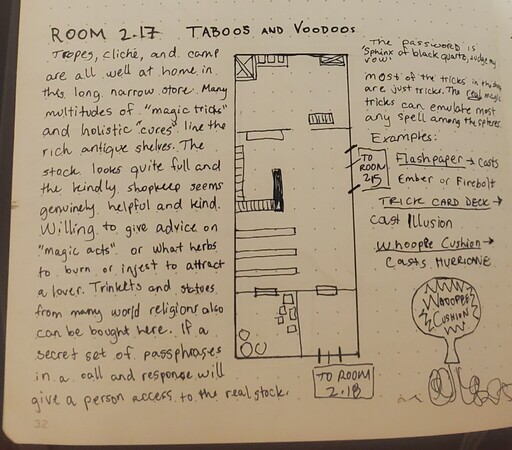 ROOM 2.17 TABOOS AND VOODOOS
Tropes, cliché, and camp
are all well at home in
this long narrow store. Many
multitudes of "magic tricks"
and holistic "cures" line the
rich antique shelves. The
stock looks quite full and
the kindly shopkeep seems
genuinely helpful and kind.
Willing to give advice on
"magic acts" or what herbs
to burn or injest to attract
a lover. Trinkets and statues
from many world religions also
can be bought here. If a
secret set of passphrases
in a call and response will
give a person access to the real stock.
32
TO
ROOM
2.15
TO ROOM
2.18
The password is
"Sphinx of black quartz, judge my
vow"
most of the tricks in the shop
are just tricks. The real magic
tricks can emulate most
any spell among the spheres.
Examples:
Flashpaper → casts
Ember or Firebolt
TRICK CARD DECK →
Cast Illusion
Whoppe Cushion →
Casts HURRICANE
WHOOPEE
CUSHION